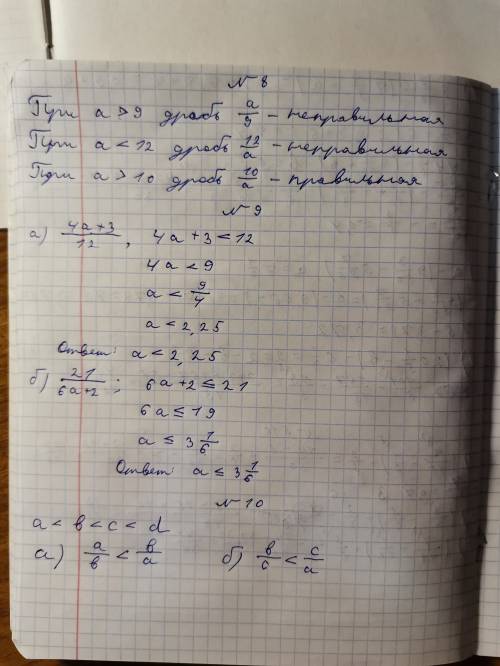 № 8
При a > 9 дробь a/9 - неправильная
При a < 12 дробь 12/a - неправильная
При a > 10 дробь 10/a - правильная
№ 9
а) (4a+3)/12, 4a+3 < 12
4a < 9
a < 9/4
a < 2,25
Ответ: a < 2,25
б) 21/(6a+2); 6a+2 ≤ 21
6a ≤ 19
a ≤ 3 1/6
Ответ: a ≤ 3 1/6
№ 10
a < b < c < d
а) a/b < b/a б) b/c < c/a